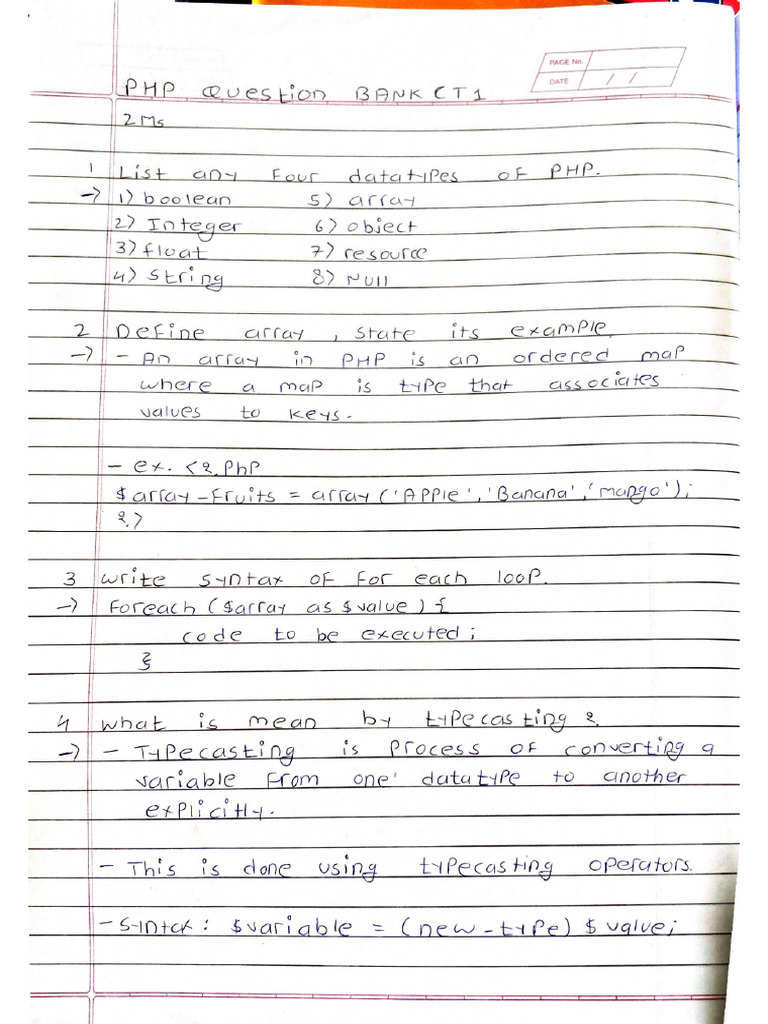 PAGE No.
DATE / /
PHP Question BANK CT1
2Ms
1 List any Four datatypes of PHP.
→ 1) boolean 5) array
2) Integer 6) object
3) float 7) resource
4) String 8) Null
2 Define array, state its example.
→ - An array in PHP is an ordered map
where a map is type that associates
values to keys.
- ex. <?php
$array-Fruits = array ('Apple', 'Banana', 'mango');
?>
3 write syntax of for each loop.
→ foreach ($array as $value) {
code to be executed;
}
4 what is mean by typecasting?
→ - Typecasting is process of converting a
variable from one datatype to another
explicitly.
- This is done using typecasting operators.
- Syntax: $variable = (new-type) $value;